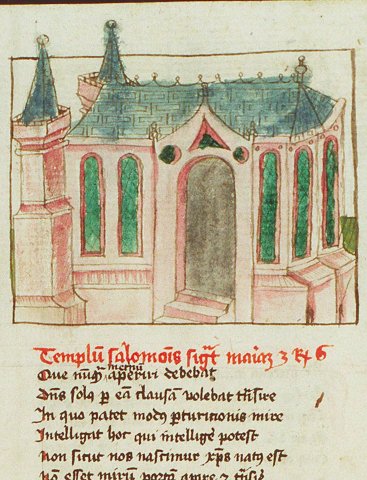 Templū salomōis sigt mariā 3 R 6
Que nūq̄ aperiri debebat
Dn̄s solꝰ ꝑ eā clausam volebat tn̄sire
In quo patet modꝰ ꝑturicionis mire
Intelligat hoc qui intellige potest
Non sicut nos nascimur xp̄s natꝰ est
Nō esset mirū portā apire ⁊ tn̄sire